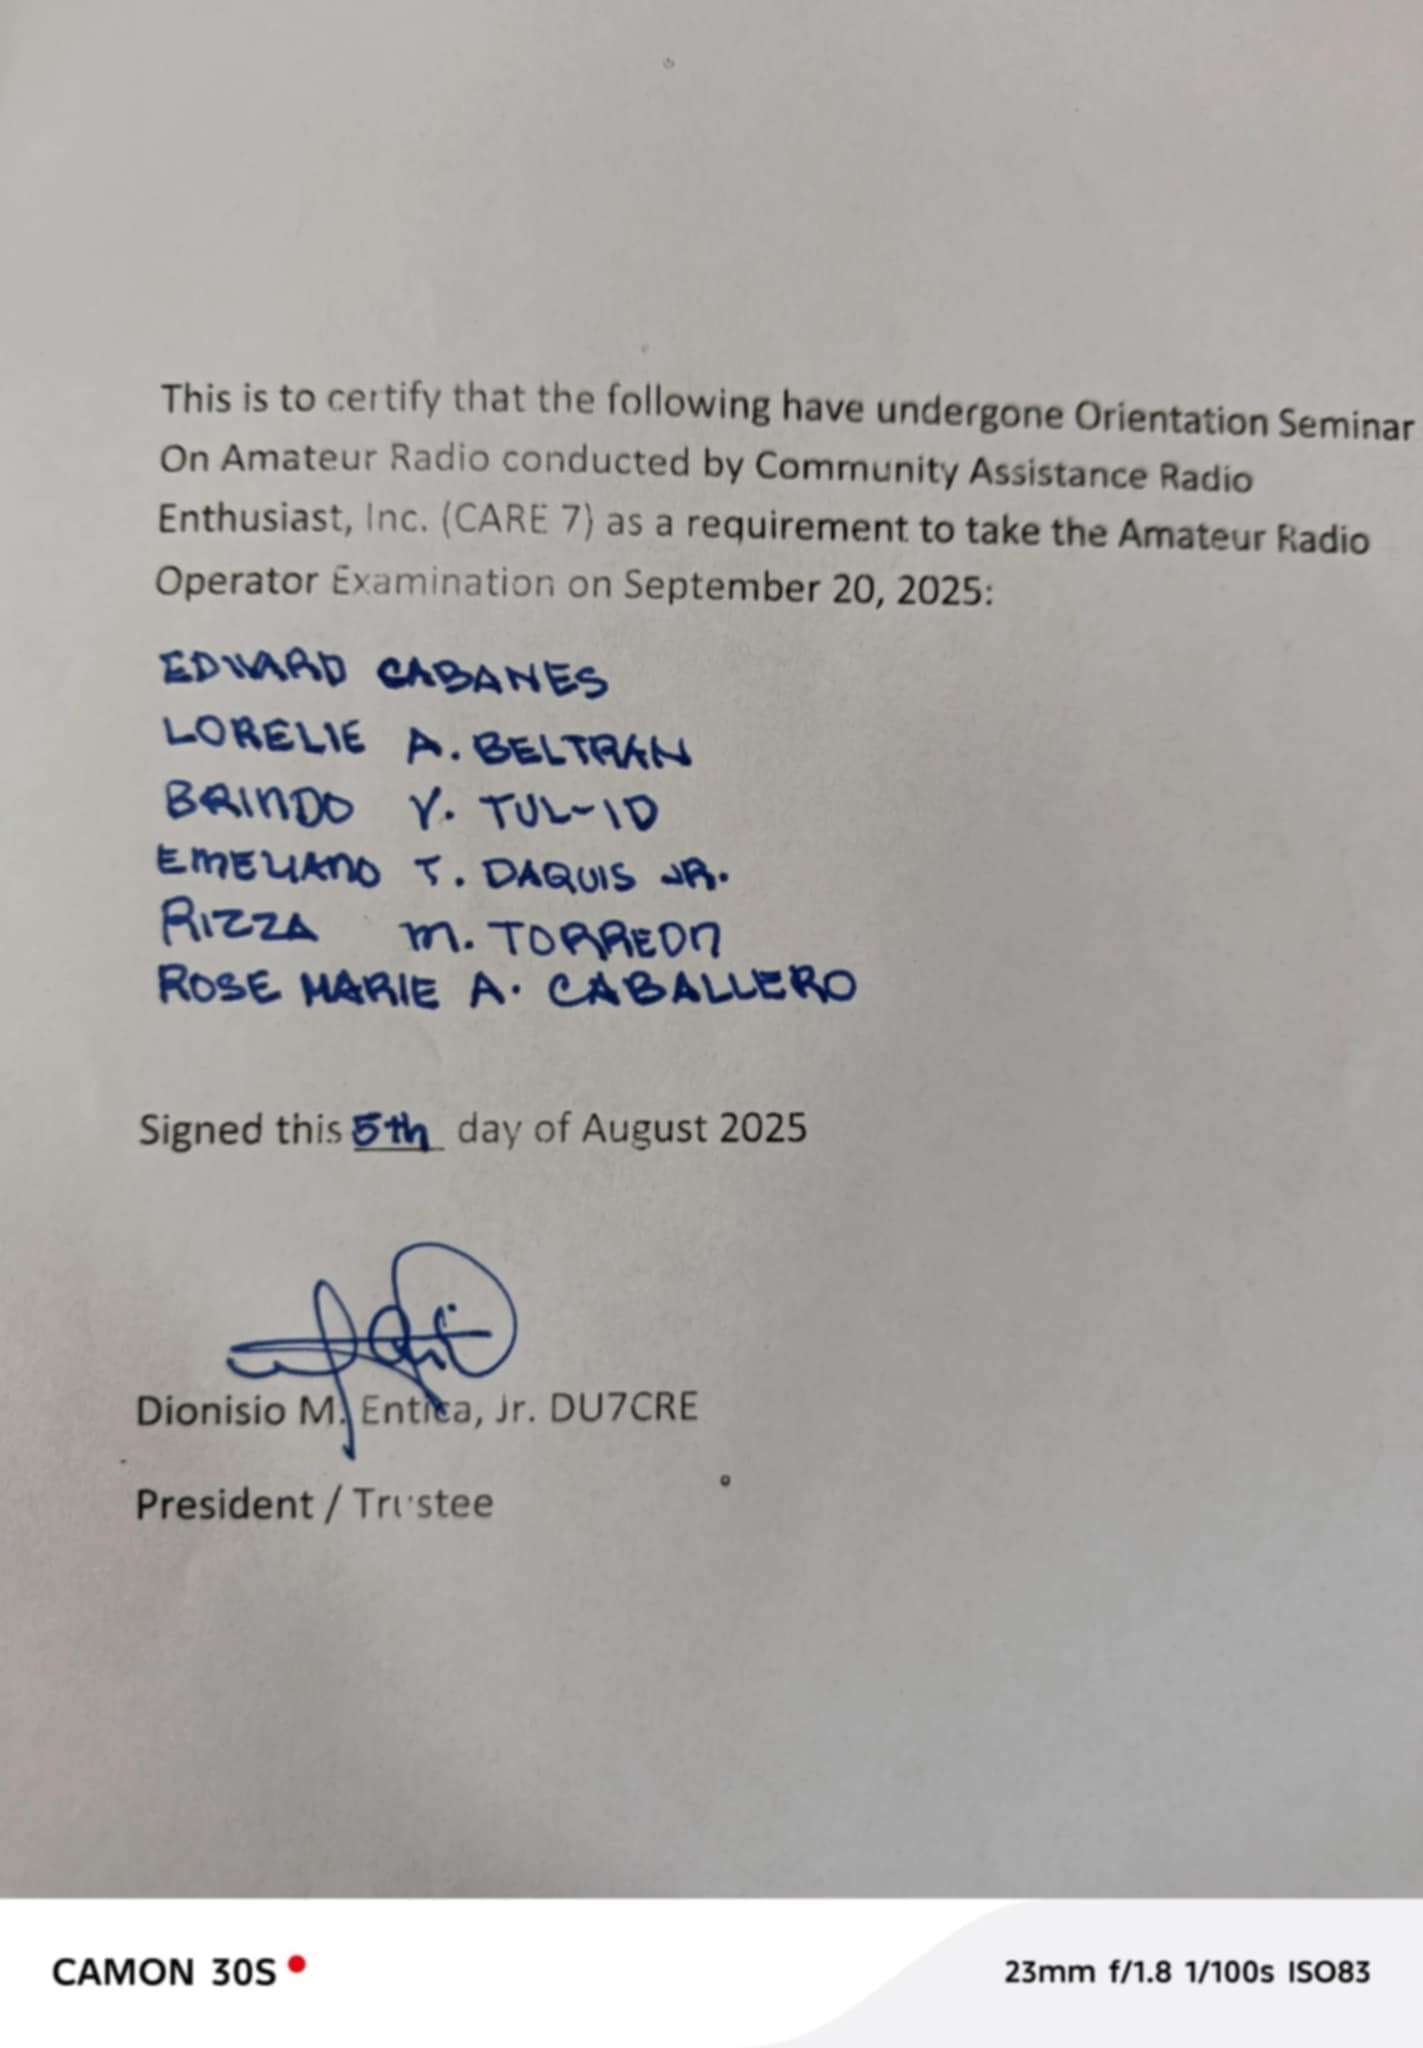 This is to certify that the following have undergone Orientation Seminar
On Amateur Radio conducted by Community Assistance Radio
Enthusiast, Inc. (CARE 7) as a requirement to take the Amateur Radio
Operator Examination on September 20, 2025:
EDWARD CABANES
LORELIE A. BELTRAN
BRINDO Y. TUL-ID
EMELIANO T. DAQUIS JR.
RIZZA M. TORREON
ROSE MARIE A. CABALLERO
Signed this 5th day of August 2025
Dionisio M. Entica, Jr. DU7CRE
President / Trustee
CAMON 30S
23mm f/1.8 1/100s ISO83